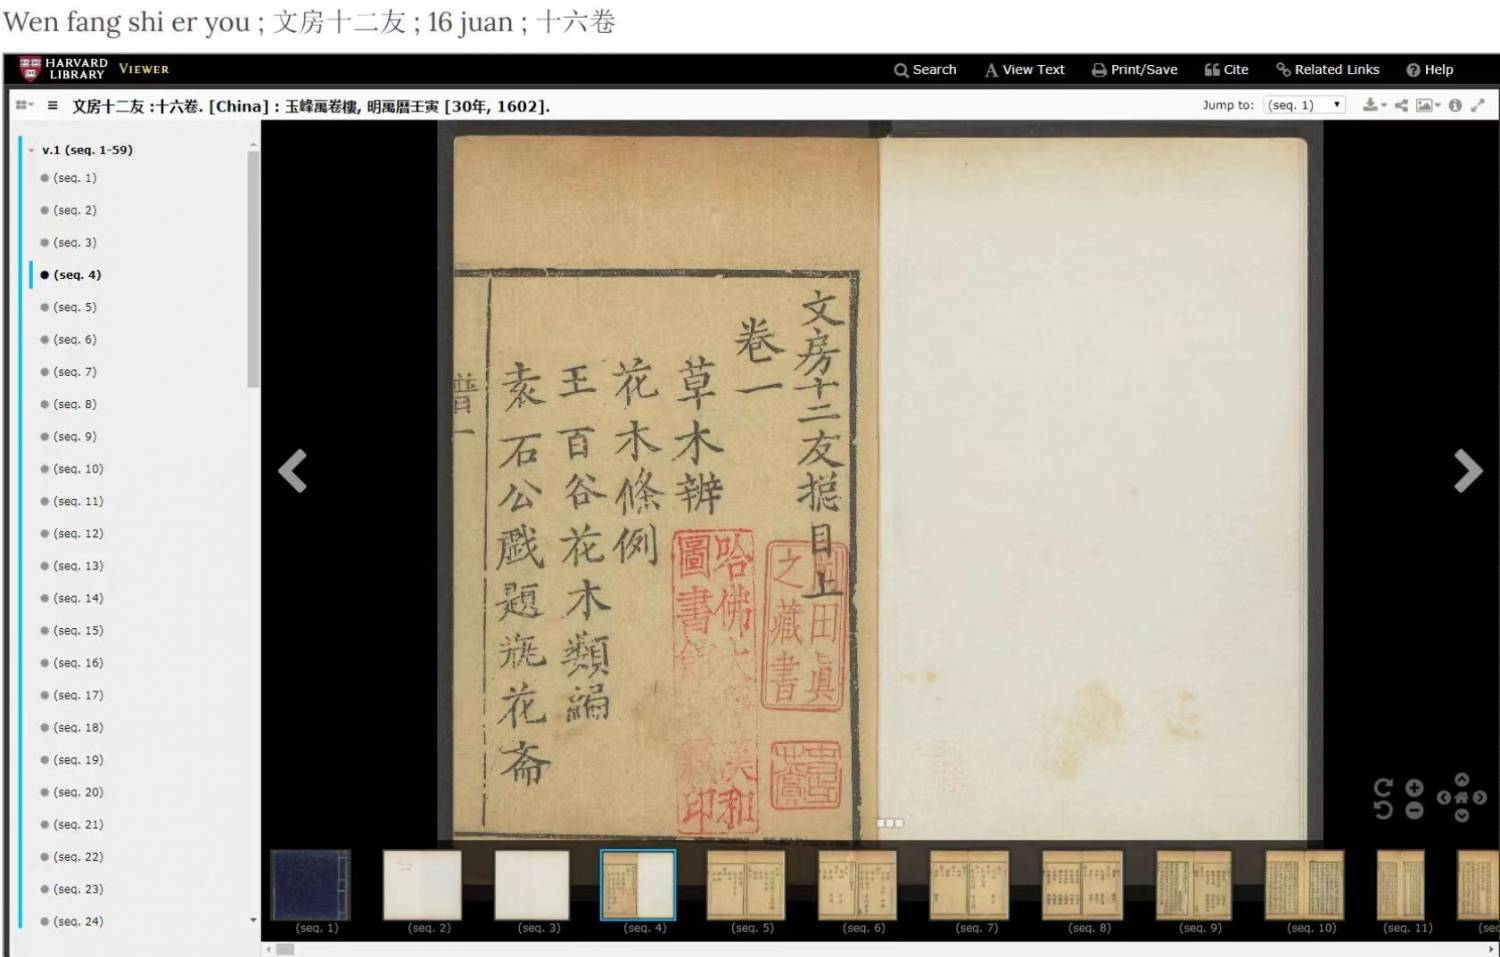 Wen fang shi er you ; 文房十二友 ; 16 juan ; 十六卷
HARVARD
LIBRARY
VIEWER
Search
View Text
Print/Save
Cite
Related Links
Help
文房十二友 :十六卷. [China] : 玉峰萬卷樓, 明萬曆壬寅 [30年, 1602].
Jump to: (seq. 1)
v.1 (seq. 1-59)
(seq. 1)
(seq. 2)
(seq. 3)
(seq. 4)
(seq. 5)
(seq. 6)
(seq. 7)
(seq. 8)
(seq. 9)
(seq. 10)
(seq. 11)
(seq. 12)
(seq. 13)
(seq. 14)
(seq. 15)
(seq. 16)
(seq. 17)
(seq. 18)
(seq. 19)
(seq. 20)
(seq. 21)
(seq. 22)
(seq. 23)
(seq. 24)
文房十二友摠目上
卷一
草木辨
花木條例
王百谷花木類編
袁石公戲題瓶花斋
譜一
田眞
之藏書
哈佛大漢和
圖書館印
(seq. 1)
(seq. 2)
(seq. 3)
(seq. 4)
(seq. 5)
(seq. 6)
(seq. 7)
(seq. 8)
(seq. 9)
(seq. 10)
(seq. 11)
(sec